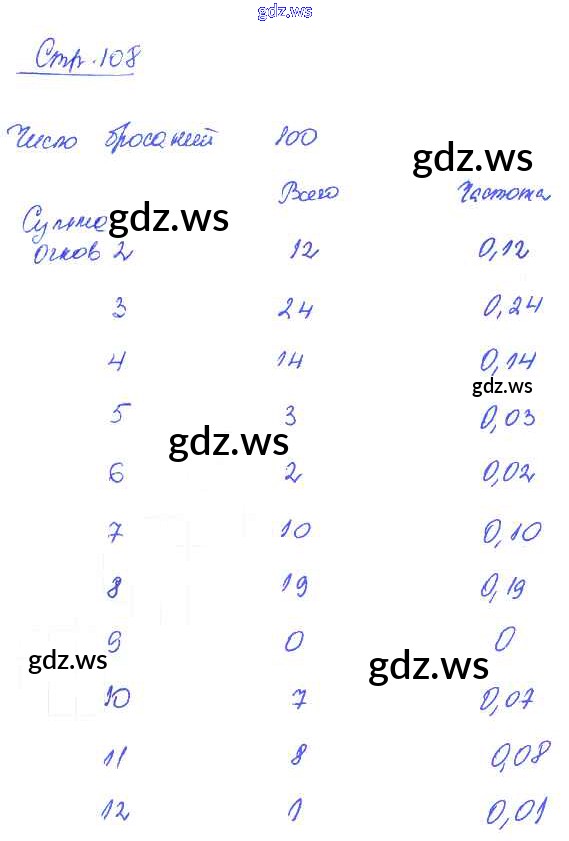 gdz.ws
Стр. 108
Число бросаний 100
gdz.ws
Всего Частота
Сумма gdz.ws
очков 2 12 0,12
3 24 0,24
4 14 0,14
gdz.ws
5 3 0,03
gdz.ws
6 2 0,02
7 10 0,10
8 19 0,19
9 0 0
gdz.ws gdz.ws
10 7 0,07
11 8 0,08
12 1 0,01